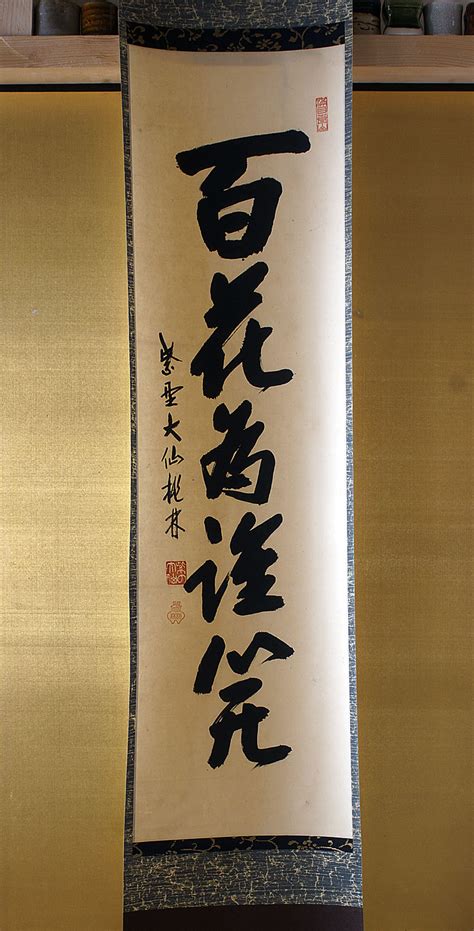 百花為誰開
紫野大仙桃林